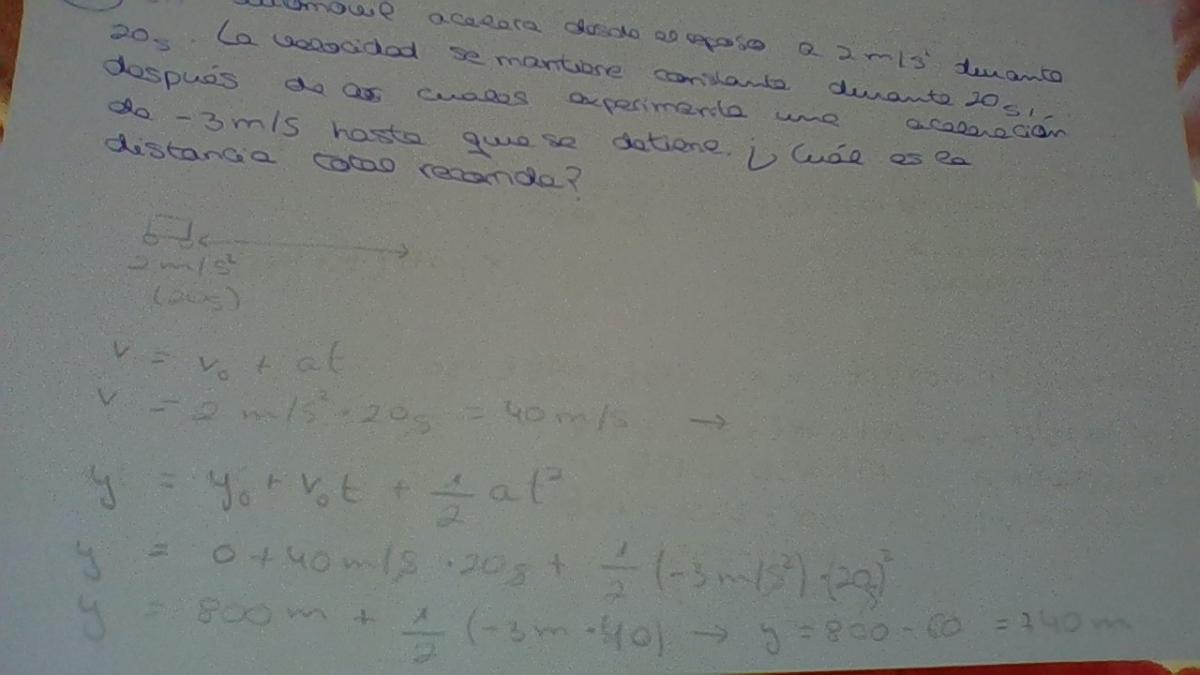 automovil acelera desde el reposo a 2 m/s² durante
20s. La velocidad se mantiene constante durante 20s,
después de los cuales experimenta una aceleración
de -3m/s hasta que se detiene. ¿Cuál es la
distancia total recorrida?
2 m/s²
(20s)
v = v₀ + at
v = 2 m/s² · 20s = 40 m/s →
y = y₀ + v₀t + 1/2 at²
y = 0 + 40m/s · 20s + 1/2 (-3m/s²) · (20s)²
y = 800m + 1/2 (-3m · 40) → y = 800 - 60 = 740m